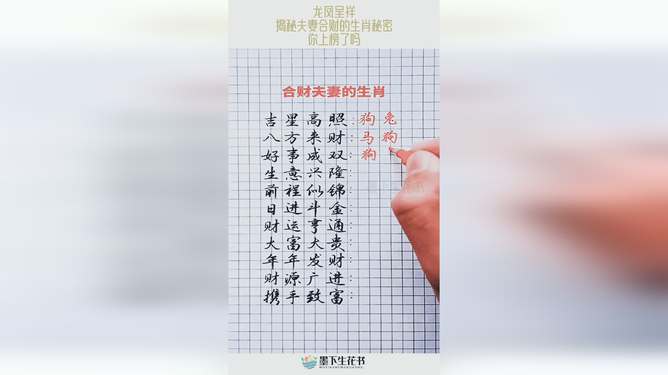 龙凤呈祥
揭秘夫妻合财的生肖秘密
你上榜了吗
合财夫妻的生肖
吉星高照:狗兔
八方来财:马狗
好事成双:狗
生意兴隆:
前程似锦:
日进斗金:
财运亨通:
大富大贵:
年年发财:
财源广进:
携手致富:
墨下生花书